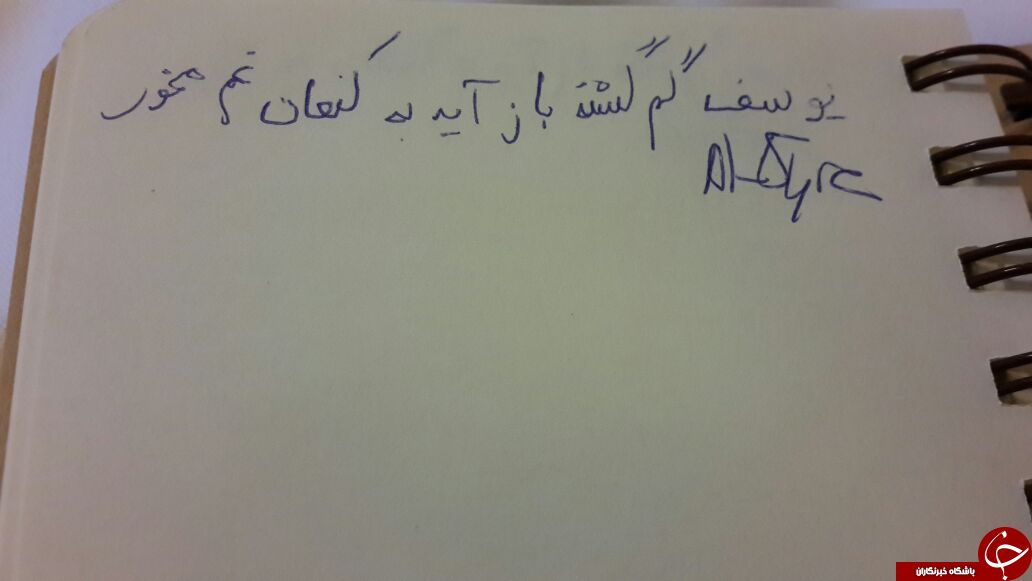 یوسف گم گشته باز آید به کنعان غم مخور
باشگاه خبرنگاران